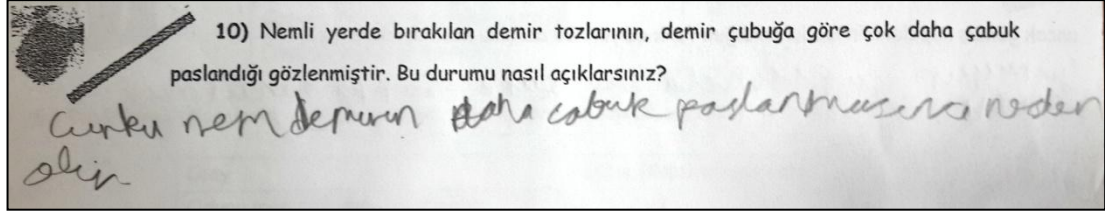 10) Nemli yerde bırakılan demir tozlarının, demir çubuğa göre çok daha çabuk
paslandığı gözlenmiştir. Bu durumu nasıl açıklarsınız?
Çunku nem demirin daha cabuk paslanmasına neden
olur